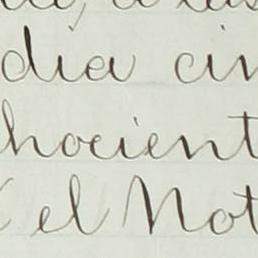 dia cin
hocient
el Not